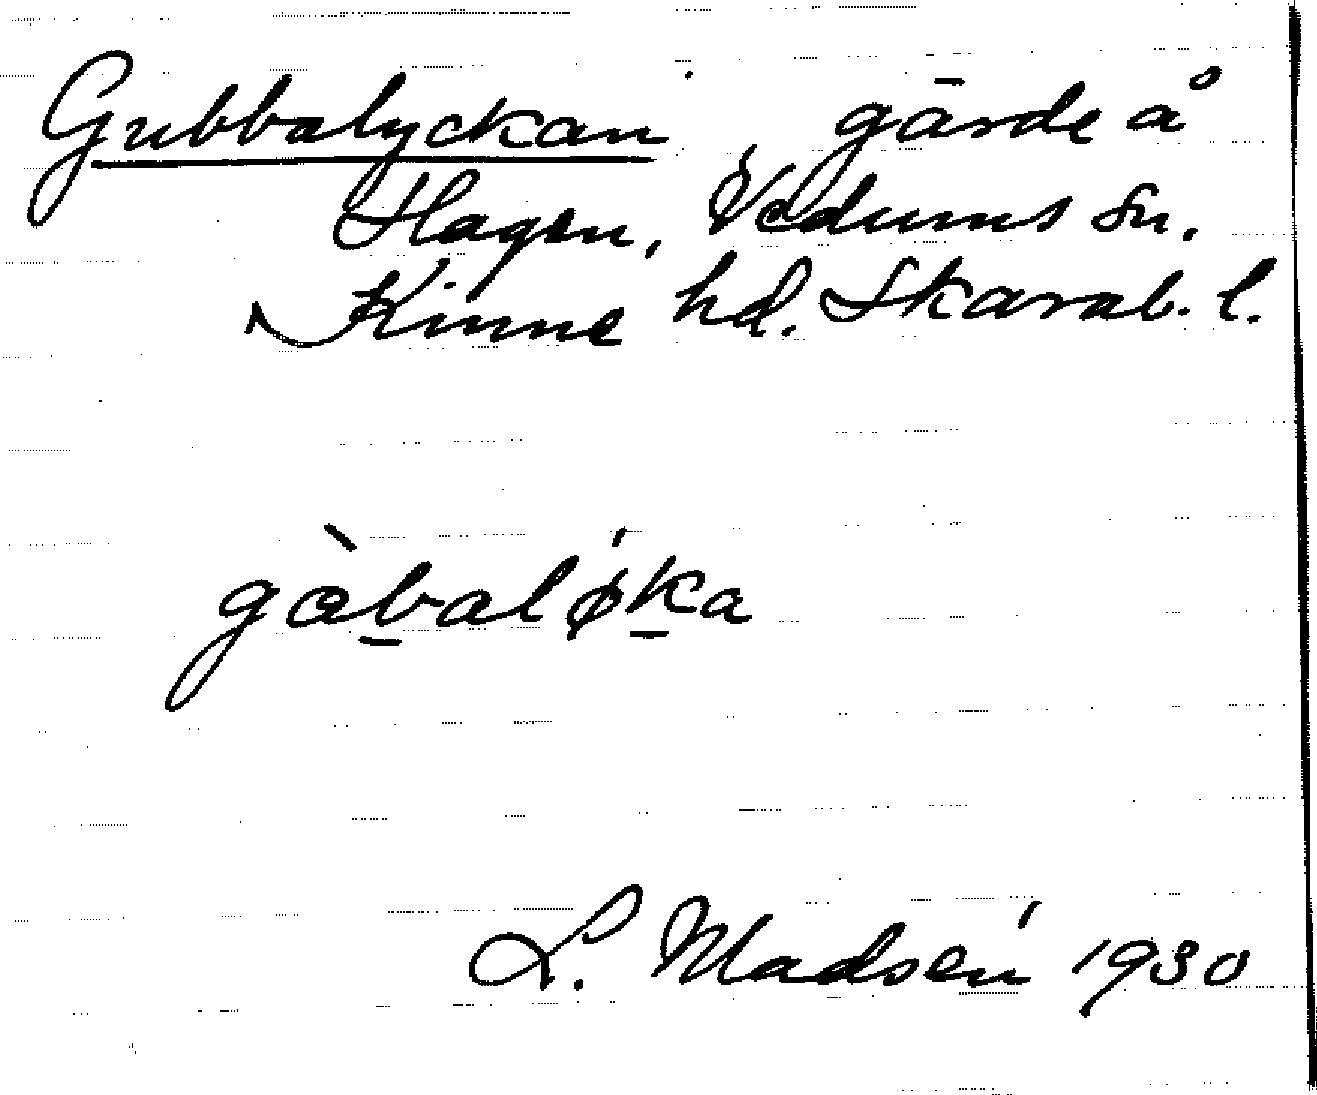 Gubbalyckan, gärde å
Hagen, Vedums sn.
Kinne hd. Skarab. l.
gòb̲alǿk̲a
L. Madsén 1930